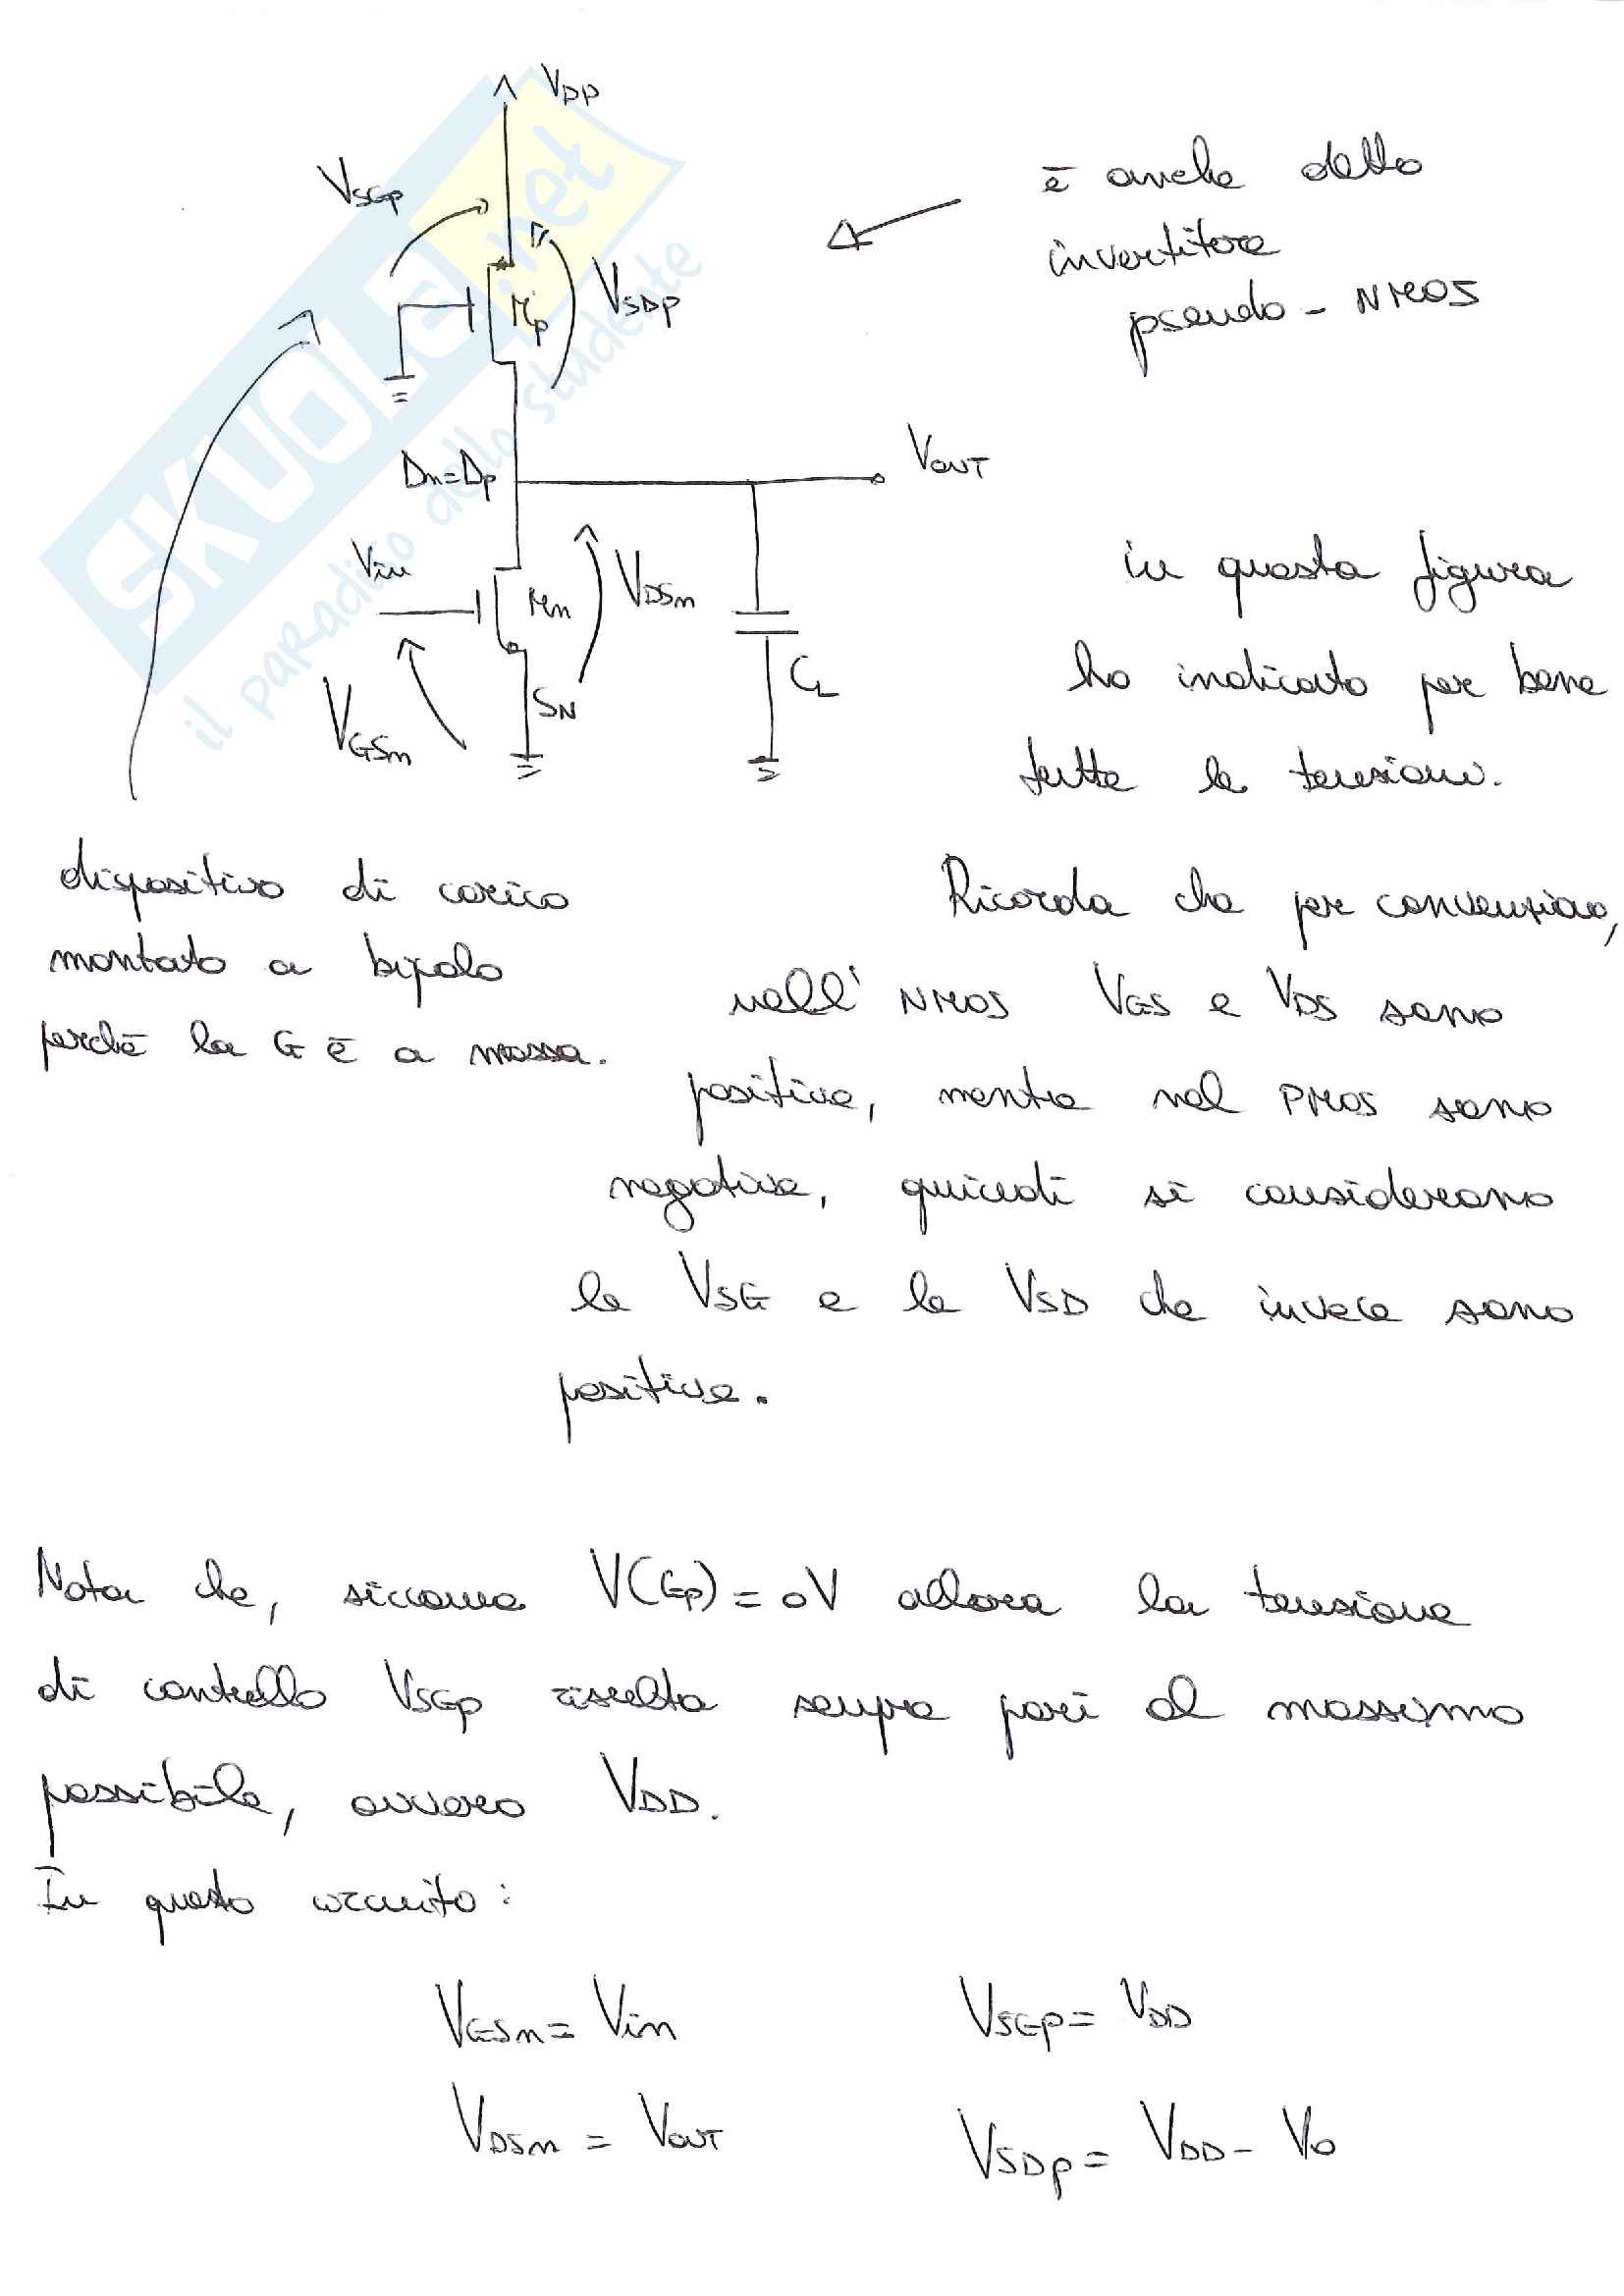 VDD
VSGp
Mp
VSDp
è anche detto
invertitore
pseudo - NMOS
Dn=Dp
VOUT
Vin
Mn
VDSn
CL
VGSn
SN
in questa figura
ho indicato per bene
tutte le tensioni.
dispositivo di carico
montato a bipolo
perchè la G è a massa.
Ricorda che per convenzione,
nell' NMOS VGS e VDS sono
positive, mentre nel PMOS sono
negative, quindi si considerano
le VSG e le VSD che invece sono
positive.
Nota che, siccome V(Gp) = 0V allora la tensione
di controllo VSGp risulta sempre pari al massimo
possibile, ovvero VDD.
In questo circuito:
VGSn = Vin
VSGp = VDD
VDSn = VOUT
VSDp = VDD - Vo
SKUOLA.net
il paradiso dello studente